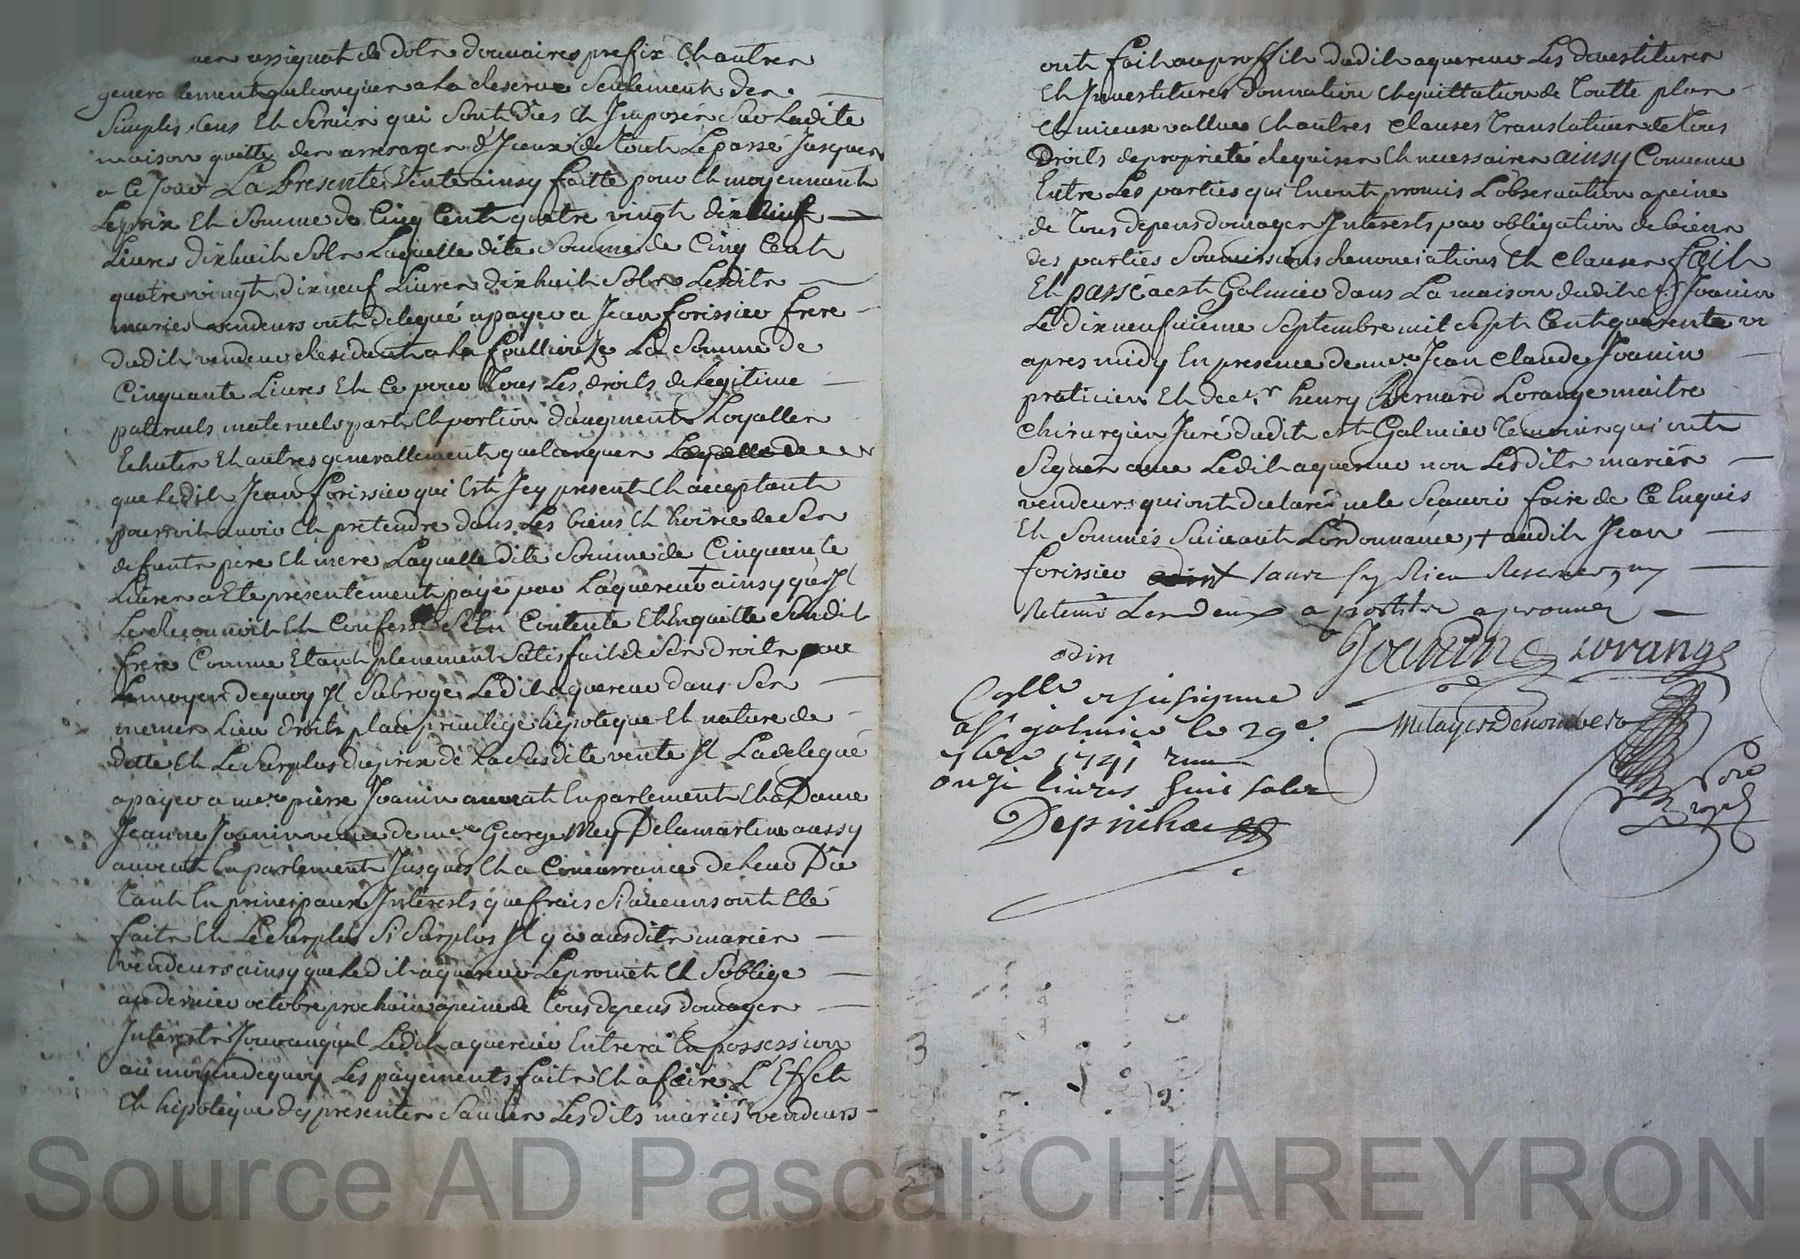 assignat de dots douaires prefix et autres
generalement quelconques a la reserve seulement des
simples cens et servis qui sont dies et Imposés sur Ladite
maison quitte des arrerages d'Iceux de tout Le passé Jusques
a Ce Jour La presente Vente ainsy faitte pour et moyennant
Le prix et somme de Cinq Cent quatre vingt dix neuf
Livres dix huit sols Laquelle dite somme de Cinq Cent
quatre vingt dix neuf Livres dix huit sols Lesdits
mariés vendeurs ont delegué a payer a Jean forissier frere
dudit vendeur Residant a la foulliouze La somme de
Cinquante Livres et Ce pour Tous Les droits de Legitime
paternels maternels part et portion d'augment Loyalles
Echutes et autres generallement quelconques
que Ledit Jean forissier qui Est Icy present et acceptant
pourroit avoir et pretendre dans Les biens et hoirie de ses
defunts pere et mere Laquelle dite somme de Cinquante
Livres a Ete presentement payé par L'aquereur ainsy qu'Il
Le Reconnoit et Confesse s'en Contente et Enquitte sondit
frere Comme Etant plenement satisfait de ses droits pour
Le moyen de quoy Il subroge Ledit aquereur dans ses
memes Lieu droits place privilege hipoteque et nature de
dette et Le surplus du prix de La susdite vente Il La delegué
a payer a me pierre Joanin avocat En parlement et a Dame
Jeanne Joanin veuve de me George Mey Delamartine aussy
avocat En parlement Jusques et a Concurrance de Leur Du
tant En principaux Interests que frais si aucuns ont Eté
faits et Le surplus si surplus Il y a ausdits mariés
vendeurs ainsy que Ledit aquereur Le promet et s'oblige
au dernier octobre prochain a peine de tous depens domages
Interests Jour auquel Ledit aquereur Entrera En possession
au moyen de quoy Les payements faits et a faire L'Effet
et hipoteque des presentes sauves Lesdits mariés vendeurs
ont fait au proffit dudit aquereur Les devestitures
Et Investitures donnation et quittation de toutte plus
et mieux vallue et autres clauses translatives de tous
Droits de proprieté Requises et necessaires ainsy Convenu
Entre Les parties qui En ont promis L'observation a peine
de Tous depens domages Interests par obligation de biens
des parties soumissions Renonciations et clauses fait
Et passé a st Galmier dans La maison dudit Sr Joanin
Le dix neufvieme septembre mil sept Cent quarente un
apres midy En presence de me Jean Claude Joanin
praticien et de sr henry Bernard Lorange maitre
chirurgien Juré dudit st Galmier temoins qui ont
signé avec Ledit aquereur non Lesdits mariés
vendeurs qui ont declaré ne le sçavoir faire de Ce Enquis
Et sommés suivant L'ordonnance, + audit Jean
forissier sans sy Rien Reserver ny
Retenir Les deux apostille aprouvées
odin
Joanin Lorange
Collé et insignué
a st galmier le 29e
7bre 1741 Reçu
onze livres huit sols